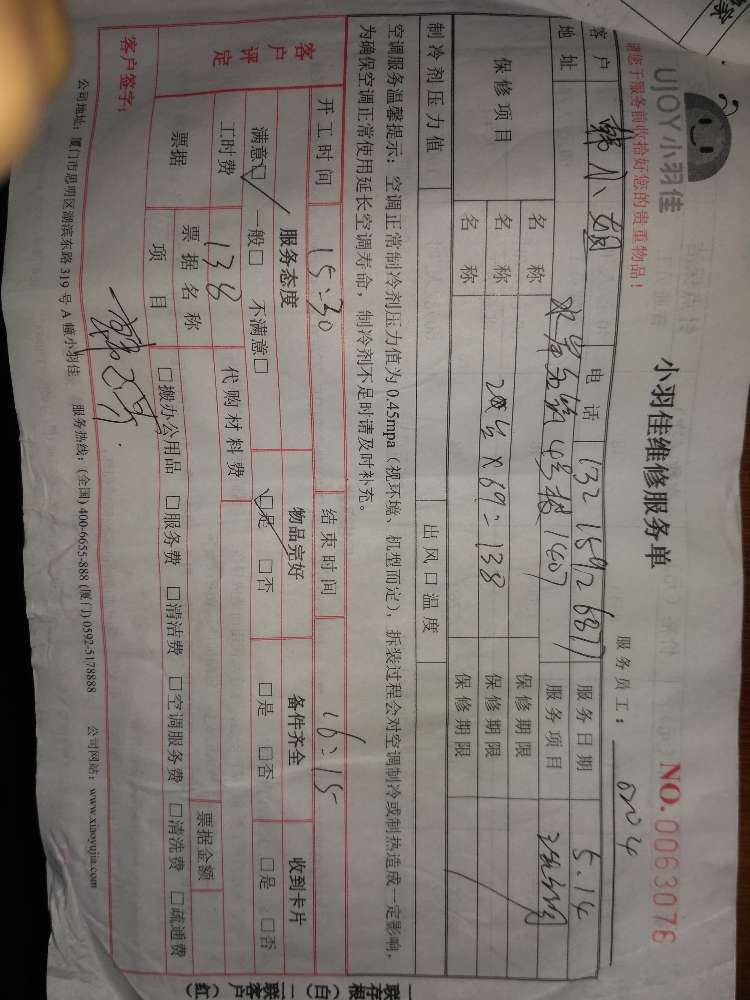 UJOY小羽佳
小羽佳维修服务单
NO.0063076
请您于服务前收拾好您的贵重物品！
服务员工：
客户 韩小姐 电话 13215926877 服务日期 5.14
地址 4号楼1407 服务项目
保修项目 名称 保修期限
名称 2×69=138 保修期限
名称 保修期限
制冷剂压力值 出风口温度
空调服务温馨提示：空调正常制冷剂压力值为0.45mpa（视环境、机型而定），拆装过程会对空调制冷或制热造成一定影响，
为确保空调正常使用延长空调寿命，制冷剂不足时请及时补充。
开工时间 15:30 结束时间 16:15
客户评定 服务态度 物品完好 备件齐全 收到卡片
满意☑ 一般□ 不满意□ ☑是 □否 □是 □否 □是 □否
工时费 138 代购材料费
票据 票据名称 票据金额
项目 □搬办公用品 □服务费 □清洁费 □空调服务费 □清洗费 □疏通费
客户签字：
公司地址：厦门市思明区湖滨东路319号A幢小羽佳 服务热线：(全国) 400-6655-888 (厦门) 0592-5178888 公司网站：www.xiaoyujia.com
一联存根（白） 二联客户（红）